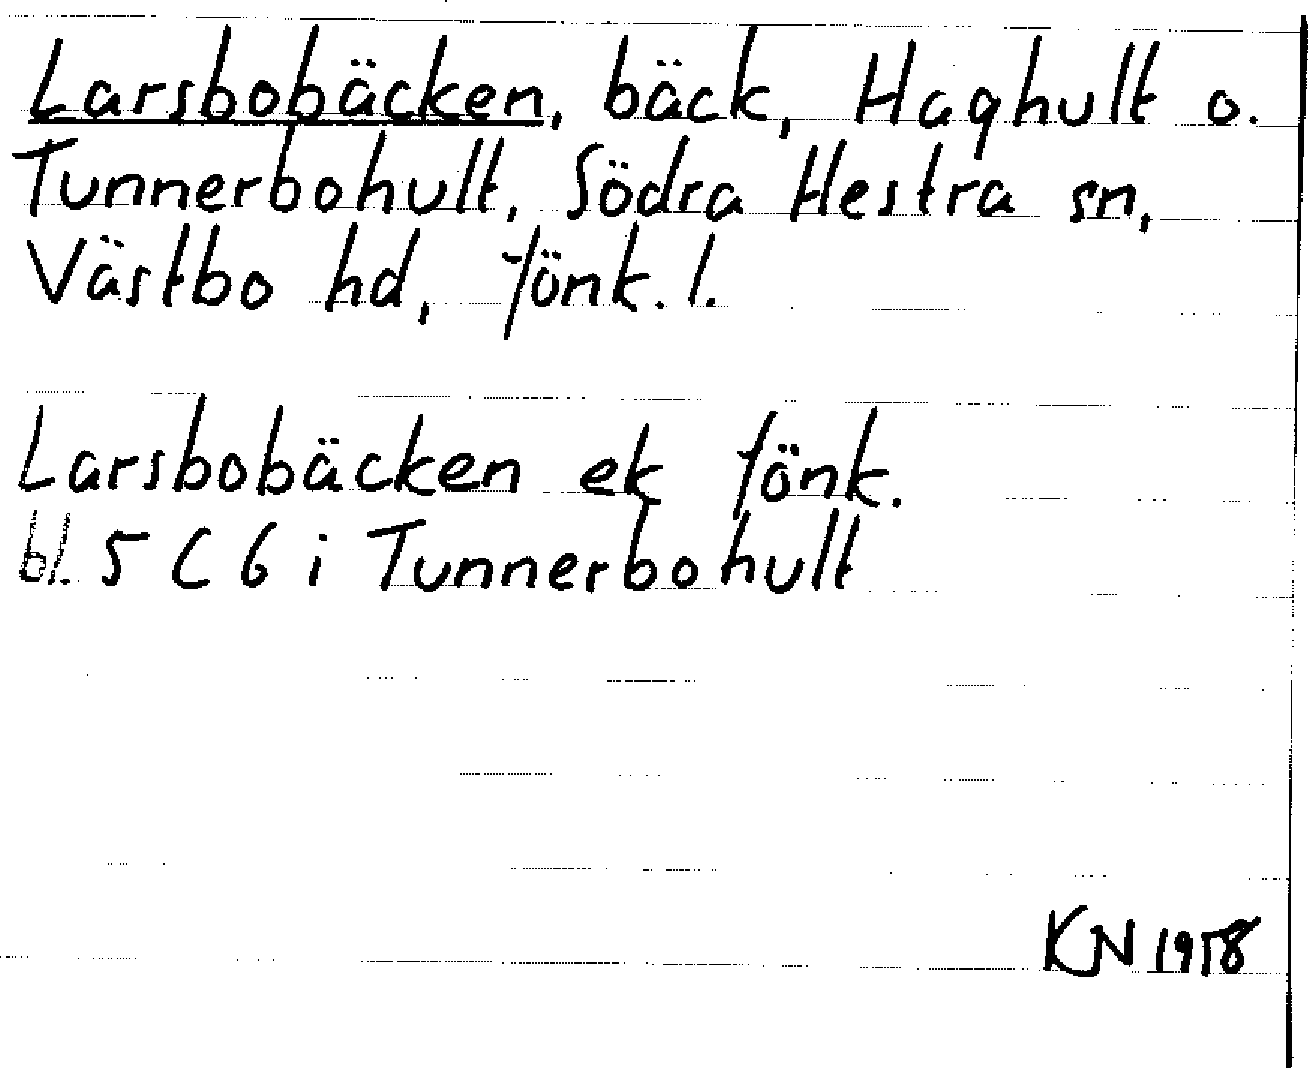 Larsbobäcken, bäck, Haghult o.
Tunnerbohult, Södra Hestra sn,
Västbo hd, Jönk. l.
Larsbobäcken ek Jönk.
bl. 5 C 6 i Tunnerbohult
KN 1958